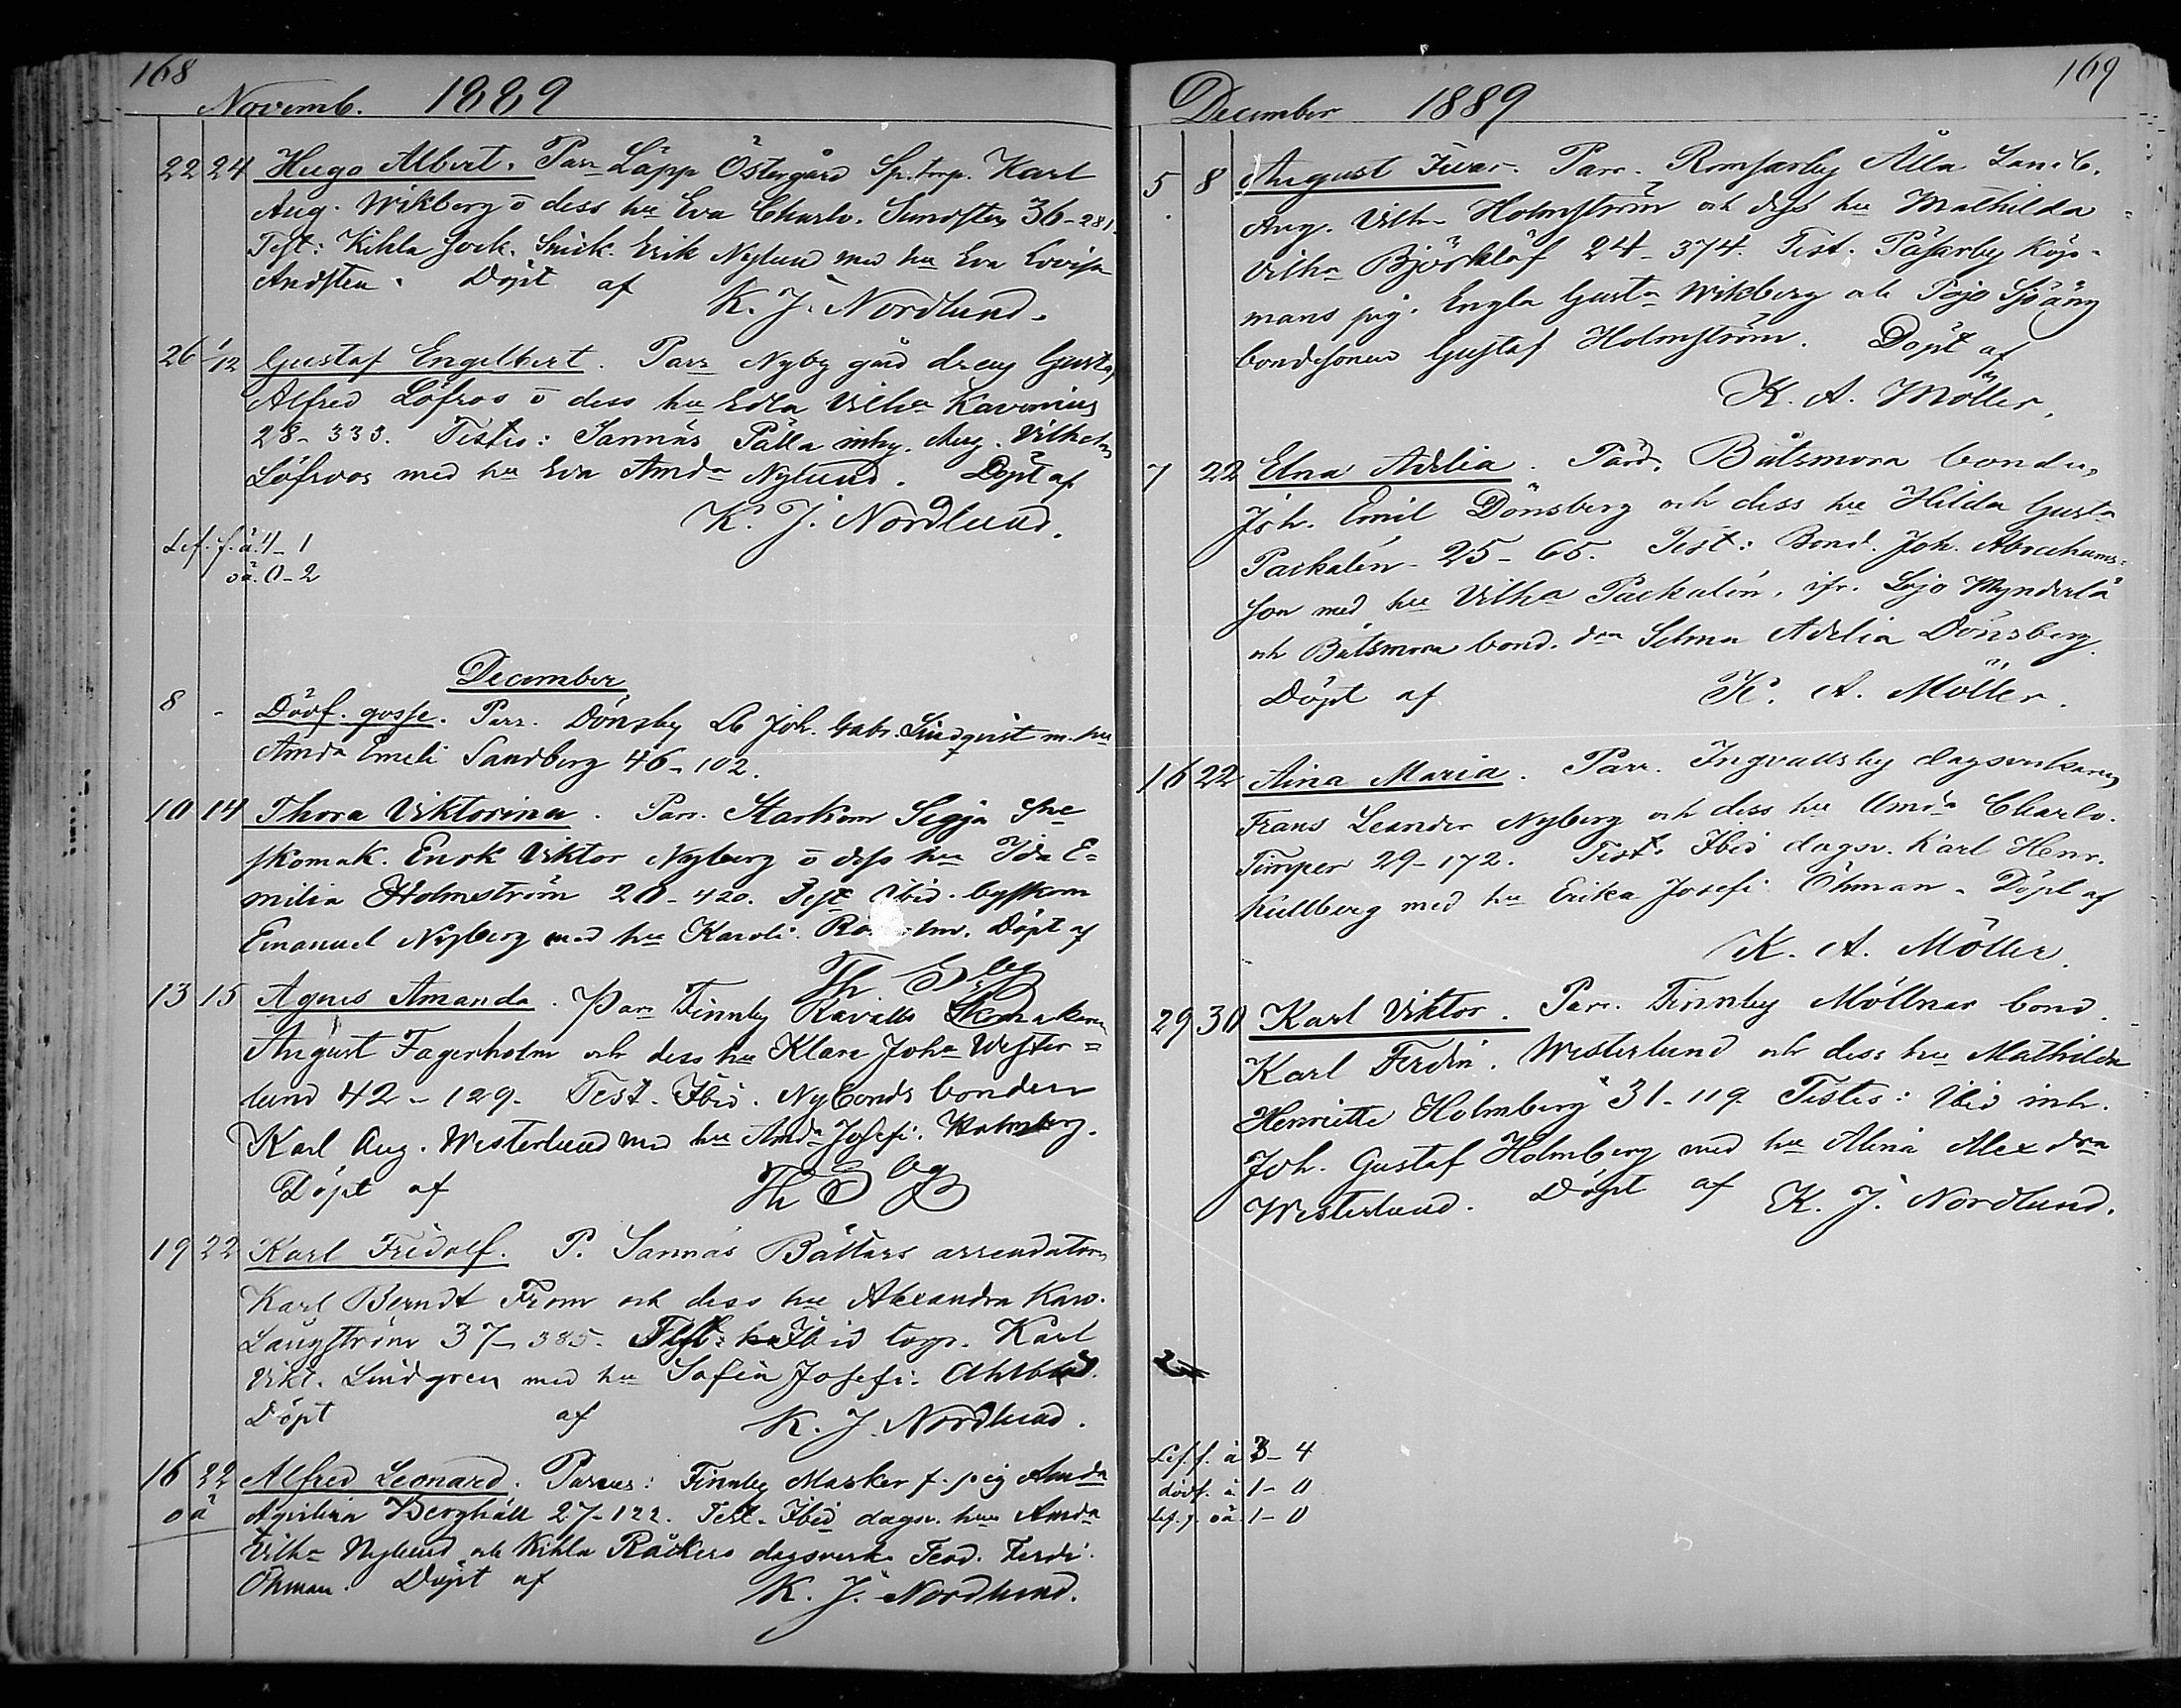 168
Novemb. 1889
22 24 Hugo Albert. Parr Läpp Östergård Sp.torp. Karl
Aug. Wikberg o dess hu Eva Charlo. Sundsten 36-281.
Test: Kihla sock. Snick. Erik Nylund med hu Eva Lovisa
Andsten. Döpt af K. J. Nordlund.
26 1/12 Gustaf Engelbert. Parr Nyby gård dreng Gustaf
Alfred Löfroos o dess hu Edla Vilha Kavonius
28-333. Testes: Sannäs Pålla inhy. Aug. Vilhelm
Löfroos med hu Eva Amda Nylund. Döpt af
K. J. Nordlund.
Lef. f. ä. 4-1
oä. 0-2
December
8 - Dödf. gosse. Parr. Dönsby Lb Joh. Gabr. Lindqvist m. hu
Amda Emeli Sandberg 46-102.
10 14 Thora Viktorina. Parr. Starkom Segja
skomak. Enok Viktor Nyberg o dess hu Ida E=
milia Holmström 20-420. Test Ibid. byskom
Emanuel Nyberg med hu Karoli. Döpt af
Th
13 15 Agnes Amanda. Parr Finnby Ravalls
August Fagerholm och dess hu Klara Joha Wester=
lund 42-129. Test. Ibid. Nybonds bonden
Karl Aug. Westerlund med hu Amda Josefi. Holmberg.
Döpt af Th
19 22 Karl Fridolf. P. Sannäs Båttars arrendatorn
Karl Berndt From och dess hu Alexandra Karo.
Långström 37-385. Test: Ibid torp. Karl
Vikt. Lindgren med hu Sofia Josefi. Ahlblad.
Döpt af K. J. Nordlund.
16 22 Alfred Leonard. Parens: Finnby Masker f. pig Amda
oä Aqvilina Berghäll 27-122. Test. Ibid dagsv. hu Amda
Vilha Nylund och Kihla Råckers dagsverk. Teod. Ferdi.
Öhman. Döpt af K. J. Nordlund.
169
December 1889
5 8 August Ivar. Parr. Romsarby Ålla
Aug. Vilh. Holmström och dess hu Mathilda
Vilha Björklöf 24-374. Test. Påsarby Köp-
mans pig. Engla Gusta Wikberg och Pojo Sjöäng
bondesonen Gustaf Holmström. Döpt af
K. A. Möller.
7 22 Elna Adelia. Parr. Båtsmora bonden
Joh. Emil Dönsberg och dess hu Hilda Gusta
Packalén - 25-65. Test: Bond. Joh. Abrahams=
son med hu Vilha Packalén, ifr. Lojo Mynderlä
och Båtsmora bond. dra Selma Adelia Dönsberg.
Döpt af K. A. Möller.
16 22 Aina Maria. Parr. Ingvallsby dagsverkaren
Frans Leander Nyberg och dess hu Amda Charlo.
Timper 29-172. Test. Ibid dagsv. Karl Henr.
Kullberg med hu Erika Josefi. Öhman. Döpt af
K. A. Möller.
29 30 Karl Viktor. Parr. Finnby Möllnar bond.
Karl Ferdin. Westerlund och dess hu Mathilda
Henriette Holmberg 31-119. Testes: Ibid inh.
Joh. Gustaf Holmberg med hu Alina Alexdra
Westerlund. Döpt af K. J. Nordlund.
Lef. f. ä 3-4
dödf. ä. 1-0
Lef. f. oä. 1-0